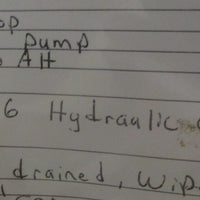 op
pump
AH
6 Hydraulic
drained, Wip